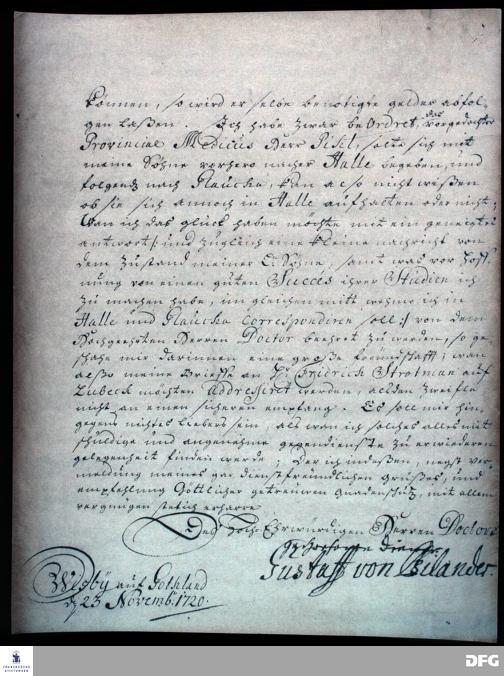 können, so wird er selbe benötigte gelder abfol-
gen laßen. Ich habe zwar beOrdret, das vorgedachter
Provincial Medicus Herr Pisil, solte sich mit
meine Söhne vorhero nacher Halle begeben, und
folgends nach Glaucha, kan also nicht wißen
ob sie sich annoch in Halle aufhalten oder nicht;
Wan ich das glück haben möchte mit ein geneigtes
antwort /: und zugleich eine kleine nachricht von
dem Zustand meiner Söhne, samt was vor hoff-
nung von einen guten Succes ihrer Studien ich
zu machen habe, im gleichen mitt wehme ich in
Halle und Glaucha Correspondiren soll :/ von dem
Hochgeehrten Herren Doctor beehret zu werden, so ge-
schahe mir darinnen eine große freundschafft; wan
alßo meine Brieffe an Fridrich Strotman auf
Lubeck möchten addressiret werden, alsden zweifle
nicht an einen sicheren empfang. Es soll mir hin-
gegens nichtes Liebers sein, als wan ich solches alles mit
schuldige und angenehme gegendienste zu erwiederen
gelegenheit finden werde; Der ich indeßen, negst ver-
meldung meines gar dienstfreundlichen grußes, und
empfehlung Göttlicher getreuwen Gnadenschutz, mit allem
vergnügen stetich erharre
Des Hoch-Ehrwurdigen Herren Doctors
Gustaff von Psilander
Wisbÿ auf Gothland
d 23 Novemb: 1720.
FRANCKESCHE
STIFTUNGEN
DFG